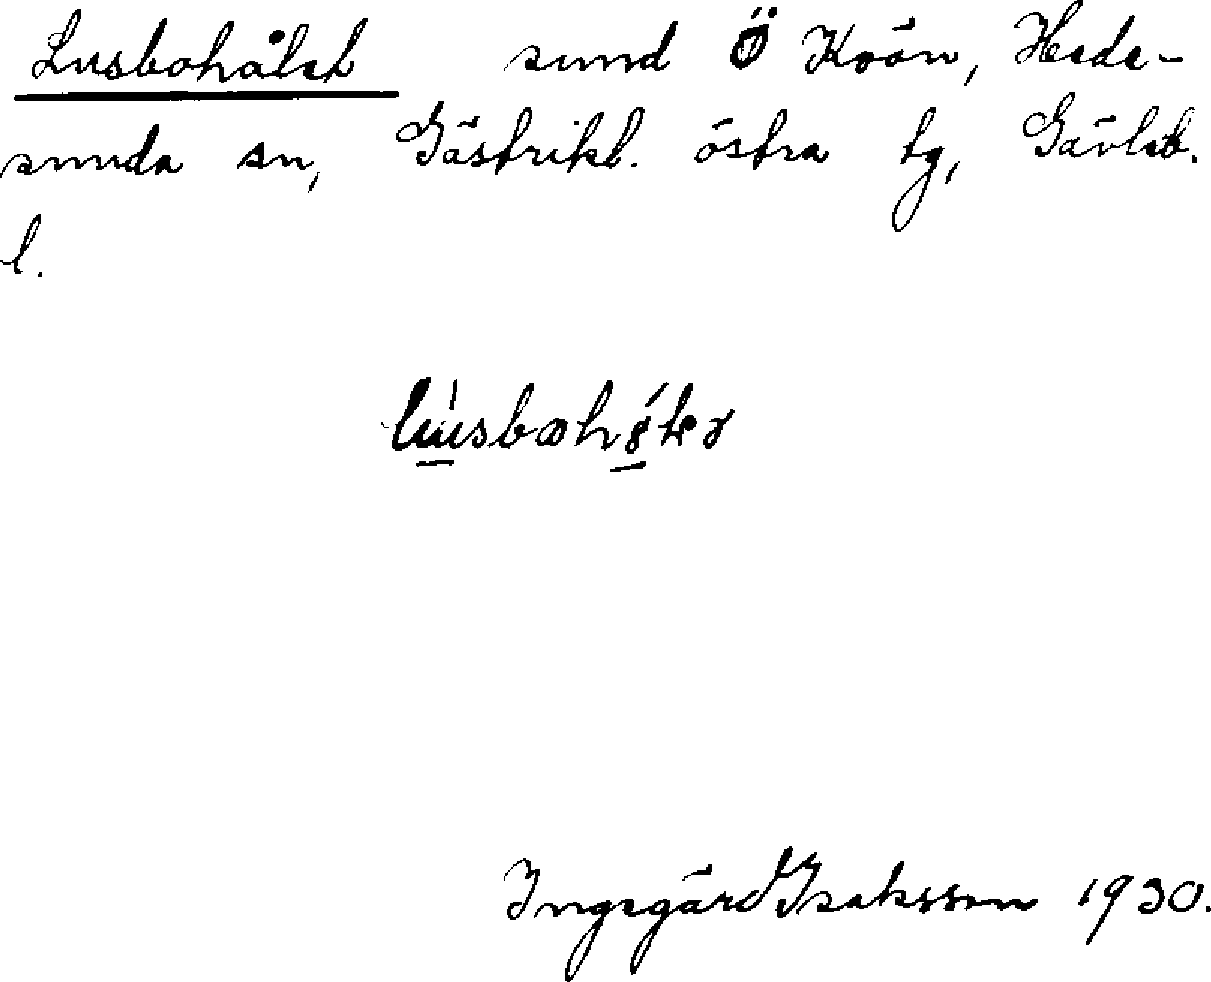 Lusbohålet sund Ö Koön, Hede-
sunda sn, Gästrikl. östra tg, Gävleb.
l.
Ingegärd Isaksson 1930.